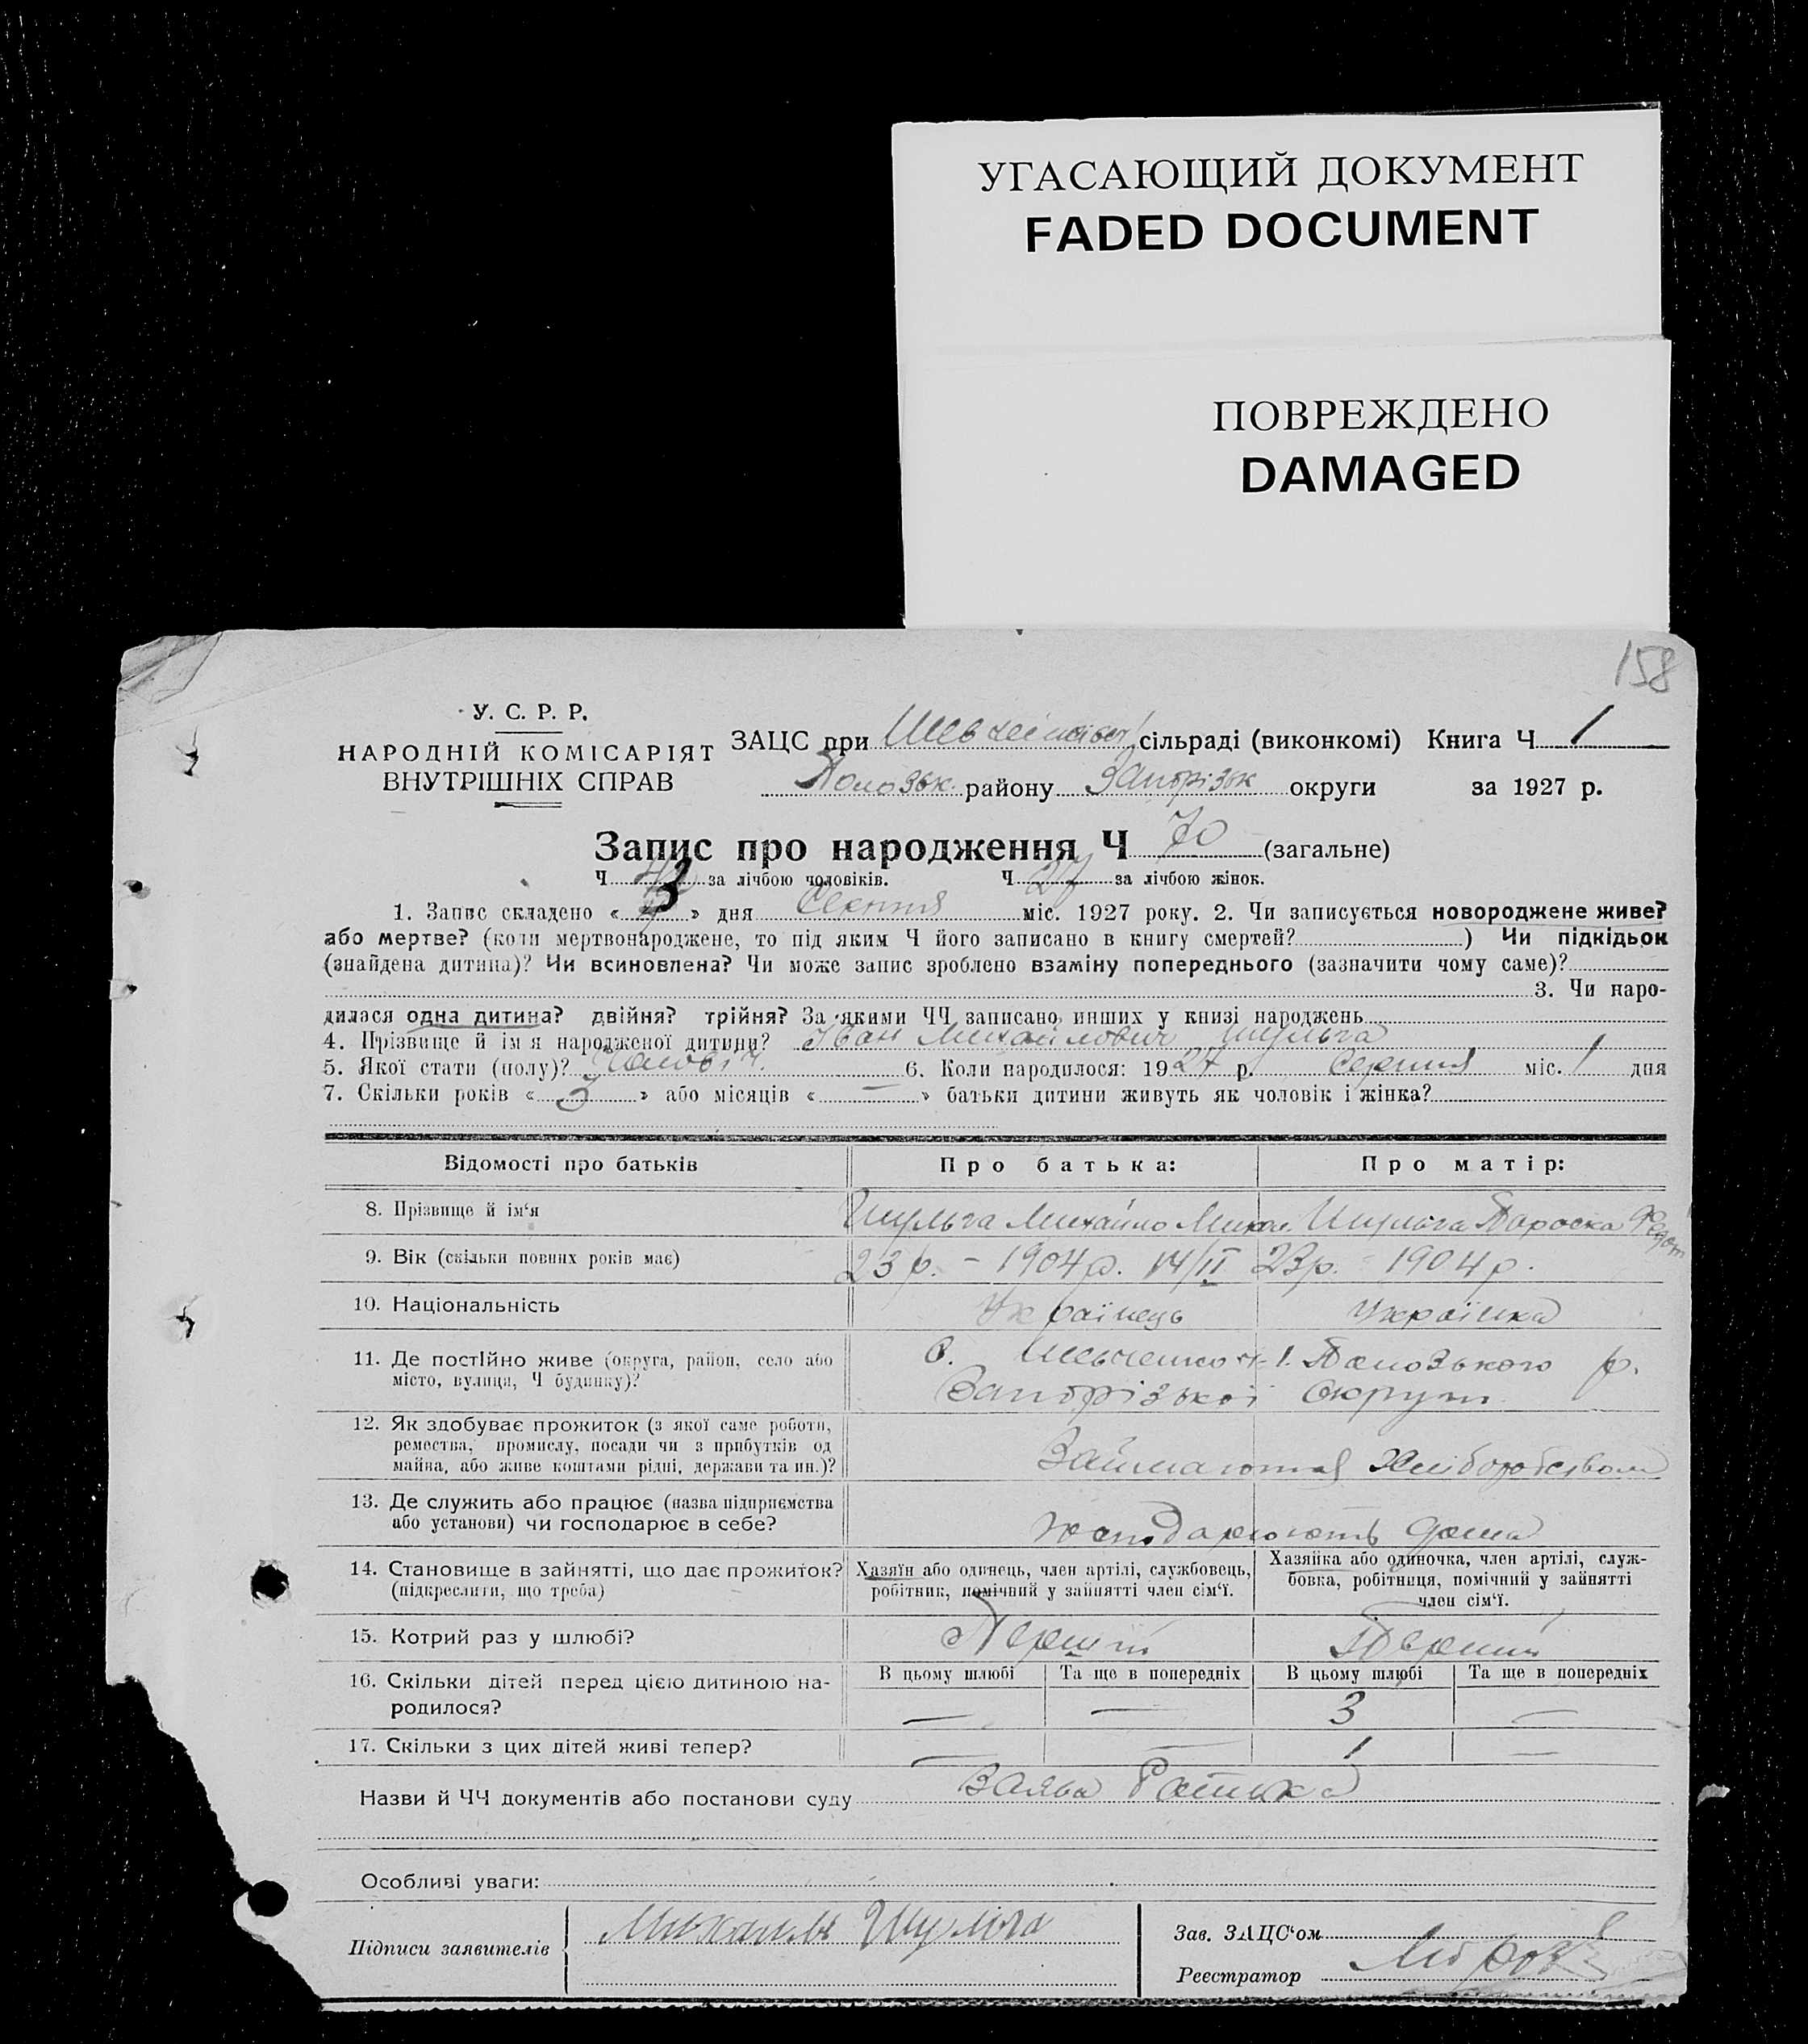 УГАСАЮЩИЙ ДОКУМЕНТ
FADED DOCUMENT
ПОВРЕЖДЕНО
DAMAGED
158
У. С. Р. Р.
НАРОДНІЙ КОМІСАРІЯТ
ВНУТРІШНІХ СПРАВ
ЗАЦС при сільраді (виконкомі) Книга Ч 1
району Запорізьк округи за 1927 р.
Запис про народження Ч 70 (загальне)
Ч за лічбою чоловіків. Ч 27 за лічбою жінок.
1. Запис складено « 3 » дня Серпня міс. 1927 року. 2. Чи записується новороджене живе?
або мертве? (коли мертвонароджене, то під яким Ч його записано в книгу смертей? ) Чи підкідьок
(знайдена дитина)? Чи всиновлена? Чи може запис зроблено взаміну попереднього (зазначити чому саме)?
3. Чи наро-
дилася одна дитина? двійня? трійня? За якими ЧЧ записано инших у книзі народжень
4. Прізвище й імя народженої дитини? Іван Михайлович Шульга
5. Якої стати (полу)? Чоловіч. 6. Коли народилося: 1927 р. Серпня міс. 1 дня
7. Скільки років « 3 » або місяців « — » батьки дитини живуть як чоловік і жінка?
Відомості про батьків Про батька: Про матір:
8. Прізвище й ім‘я Шульга Михайло Шульга Параска Федот
9. Вік (скільки повних років має) 23 р. – 1904 р. 14/II 23 р. 1904 р.
10. Національність Українець Українка
11. Де постійно живе (округа, район, село або
місто, вулиця, Ч будинку)?
с. р.
Запорізької Округи
12. Як здобуває прожиток (з якої саме роботи,
ремества, промислу, посади чи з прибутків од
майна, або живе коштами рідні, держави та ин.)?
Займаются Хліборобством
13. Де служить або працює (назва підприємства
або установи) чи господарює в себе?
господарюють дома
14. Становище в зайнятті, що дає прожиток?
(підкреслити, що треба)
Хазяїн або одинець, член артілі, службовець,
робітник, помічний у зайнятті член сім‘ї.
Хазяйка або одиночка, член артілі, служ-
бовка, робітниця, помічний у зайнятті
член сім‘ї.
15. Котрий раз у шлюбі? Перший Перший
16. Скільки дітей перед цією дитиною на-
родилося?
В цьому шлюбі Та ще в попередніх В цьому шлюбі Та ще в попередніх
— — 3 —
17. Скільки з цих дітей живі тепер? — — 1 —
Назви й ЧЧ документів або постанови суду Заява Батька
Особливі уваги:
Підписи заявителів Шульга
Зав. ЗАЦС‘ом
Реєстратор